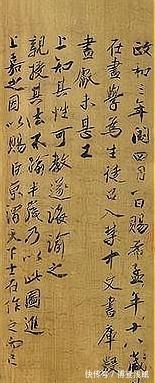 政和三年閏四月一日賜希孟年十八歲昔
在畫學為生徒召入禁中文書庫數以
畫獻未甚工
上知其性可教遂誨諭之
親授其法不踰半歲乃以此圖進
上嘉之因以賜臣京謂天下士在作之而已
快传号